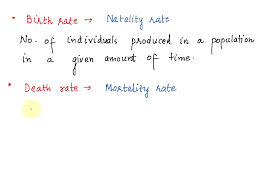 • Birth rate → Natality rate
No. of individuals produced in a population
in a given amount of time.
• Death rate → Mortality rate